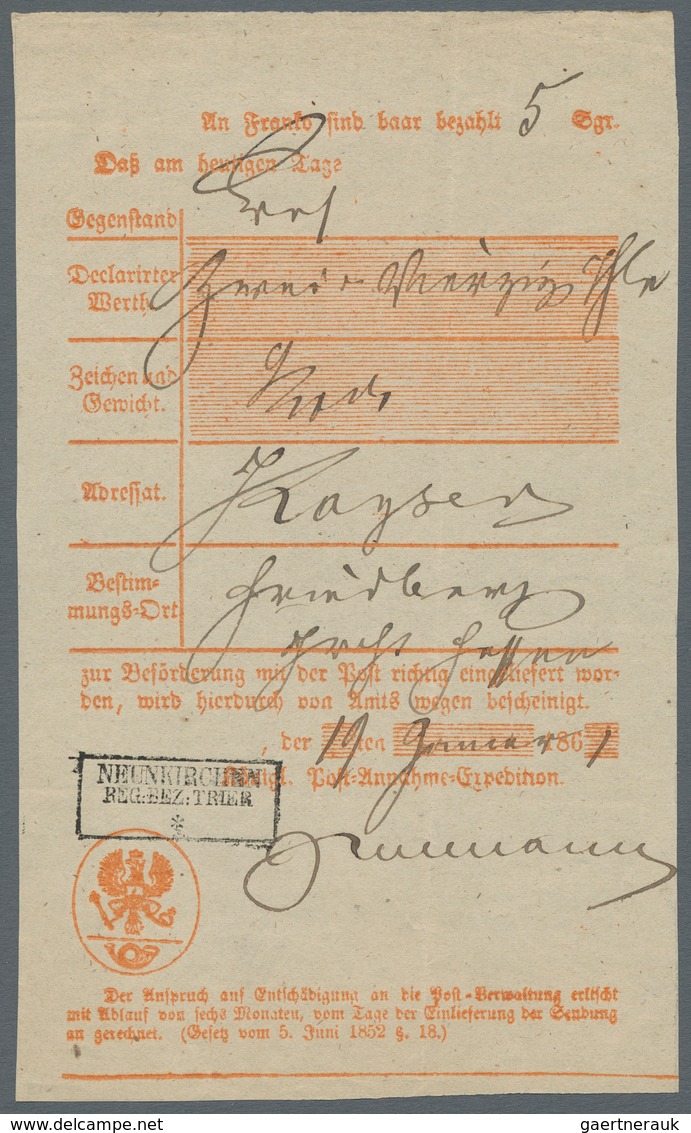 An Franko sind baar bezahlt 5 Sgr.
Daß am heutigen Tage
Gegenstand
Declarirter
Werth
Zwei u Vierzig Thle
Zeichen und
Gewicht.
Adressat.
Kayser
Bestim-
mungs-Ort
Friedberg
Hessen
zur Beförderung mit der Post richtig eingeliefert wor-
den, wird hierdurch von Amts wegen bescheinigt.
, der 19 ten Januar 1861
NEUNKIRCHEN
REG:BEZ:TRIER
*
Königl. Post-Annahme-Expedition.
Der Anspruch auf Entschädigung an die Post-Verwaltung erlischt
mit Ablauf von sechs Monaten, vom Tage der Einlieferung der Sendung
an gerechnet. (Gesetz vom 5. Juni 1852 §. 18.)
www.delcampe.net
gaertnerauk